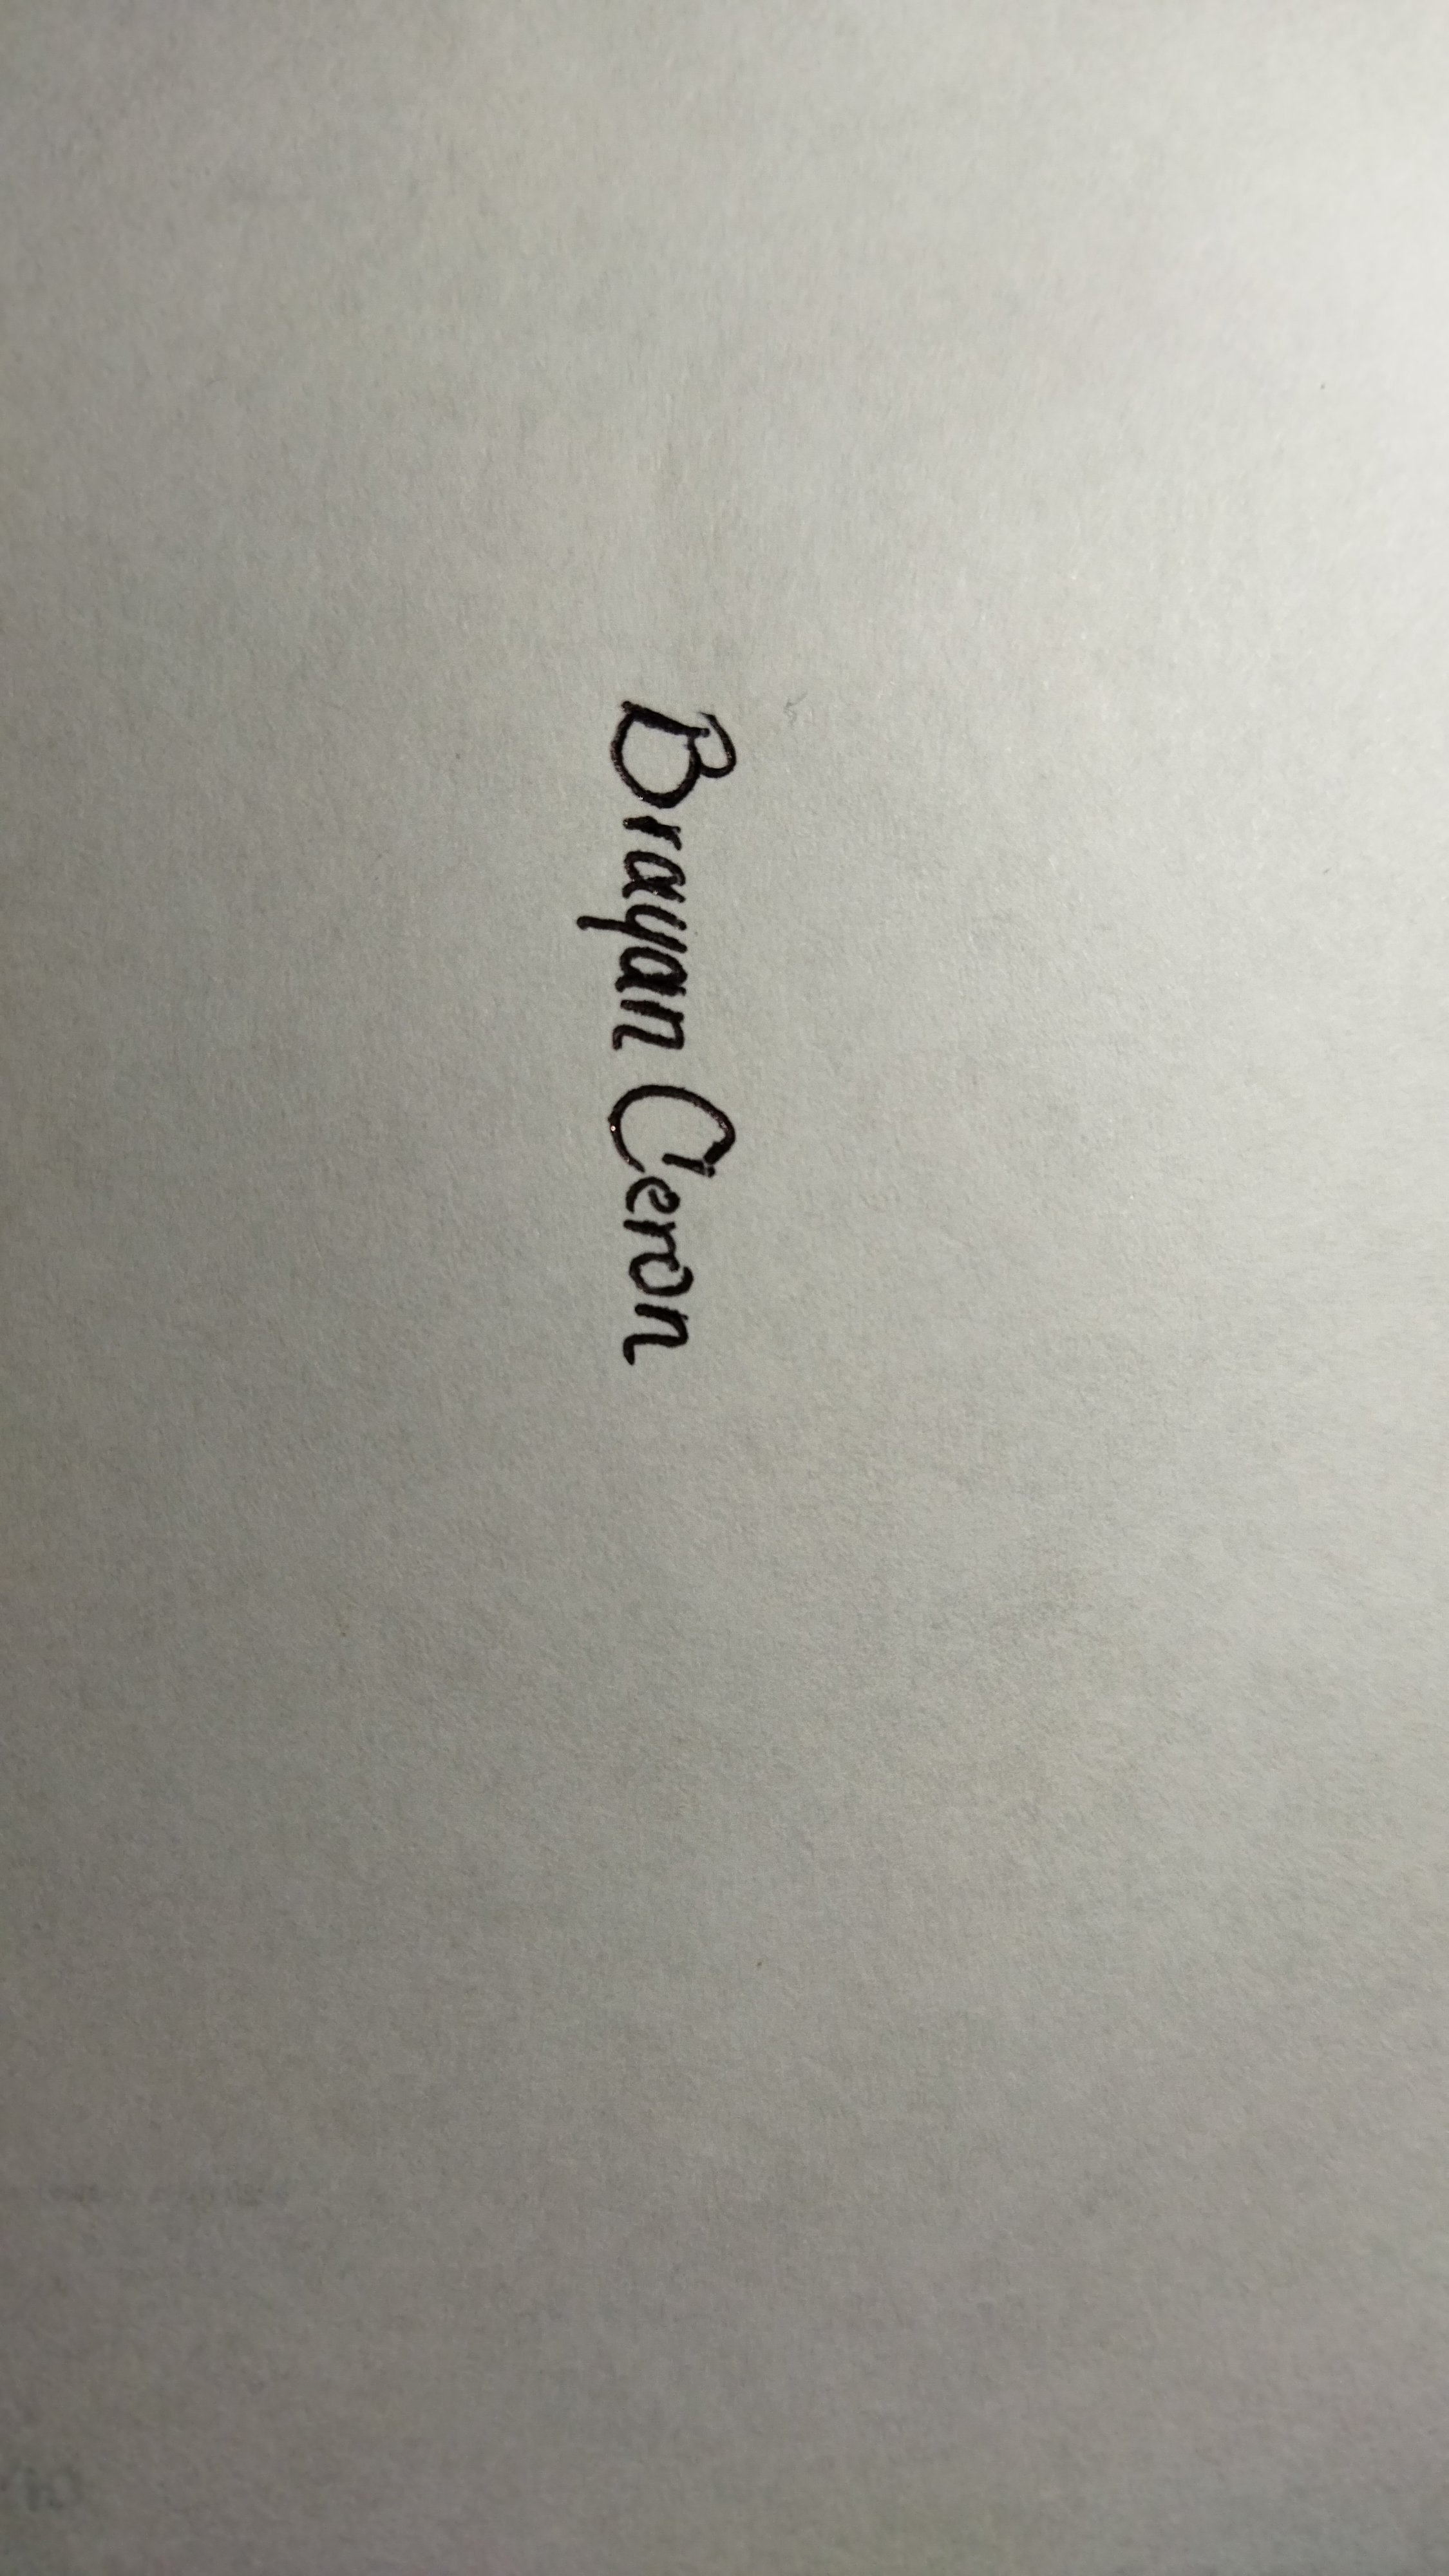 Brayan Ceron